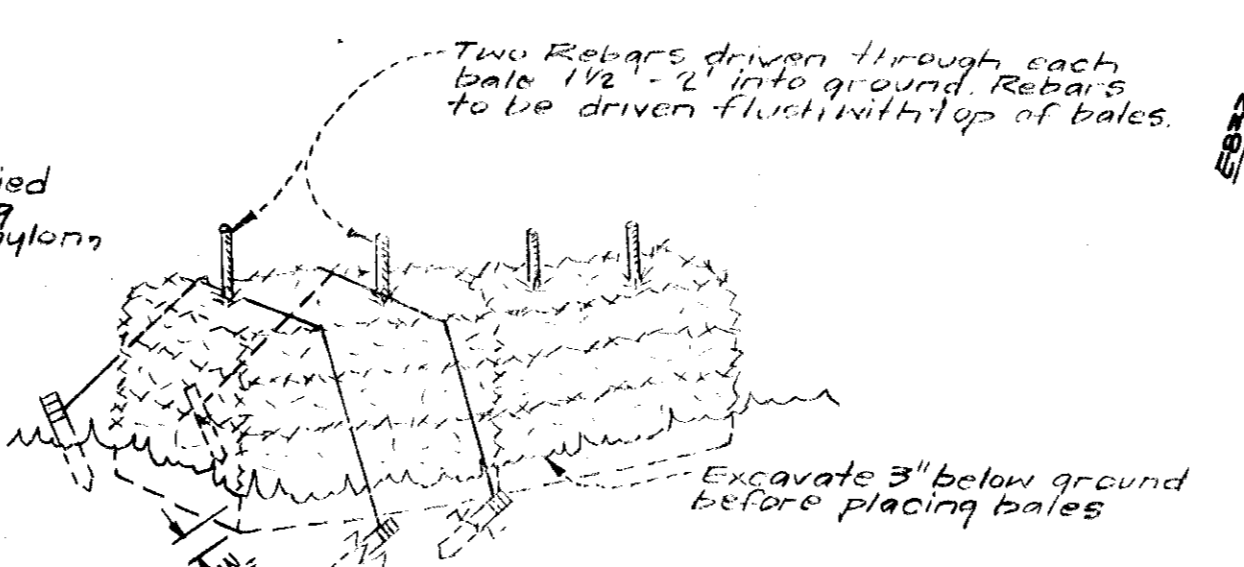 Two Rebars driven through each
bale 1½' - 2' into ground. Rebars
to be driven flush with top of bales.
ied
nylon,
Excavate 3" below ground
before placing bales